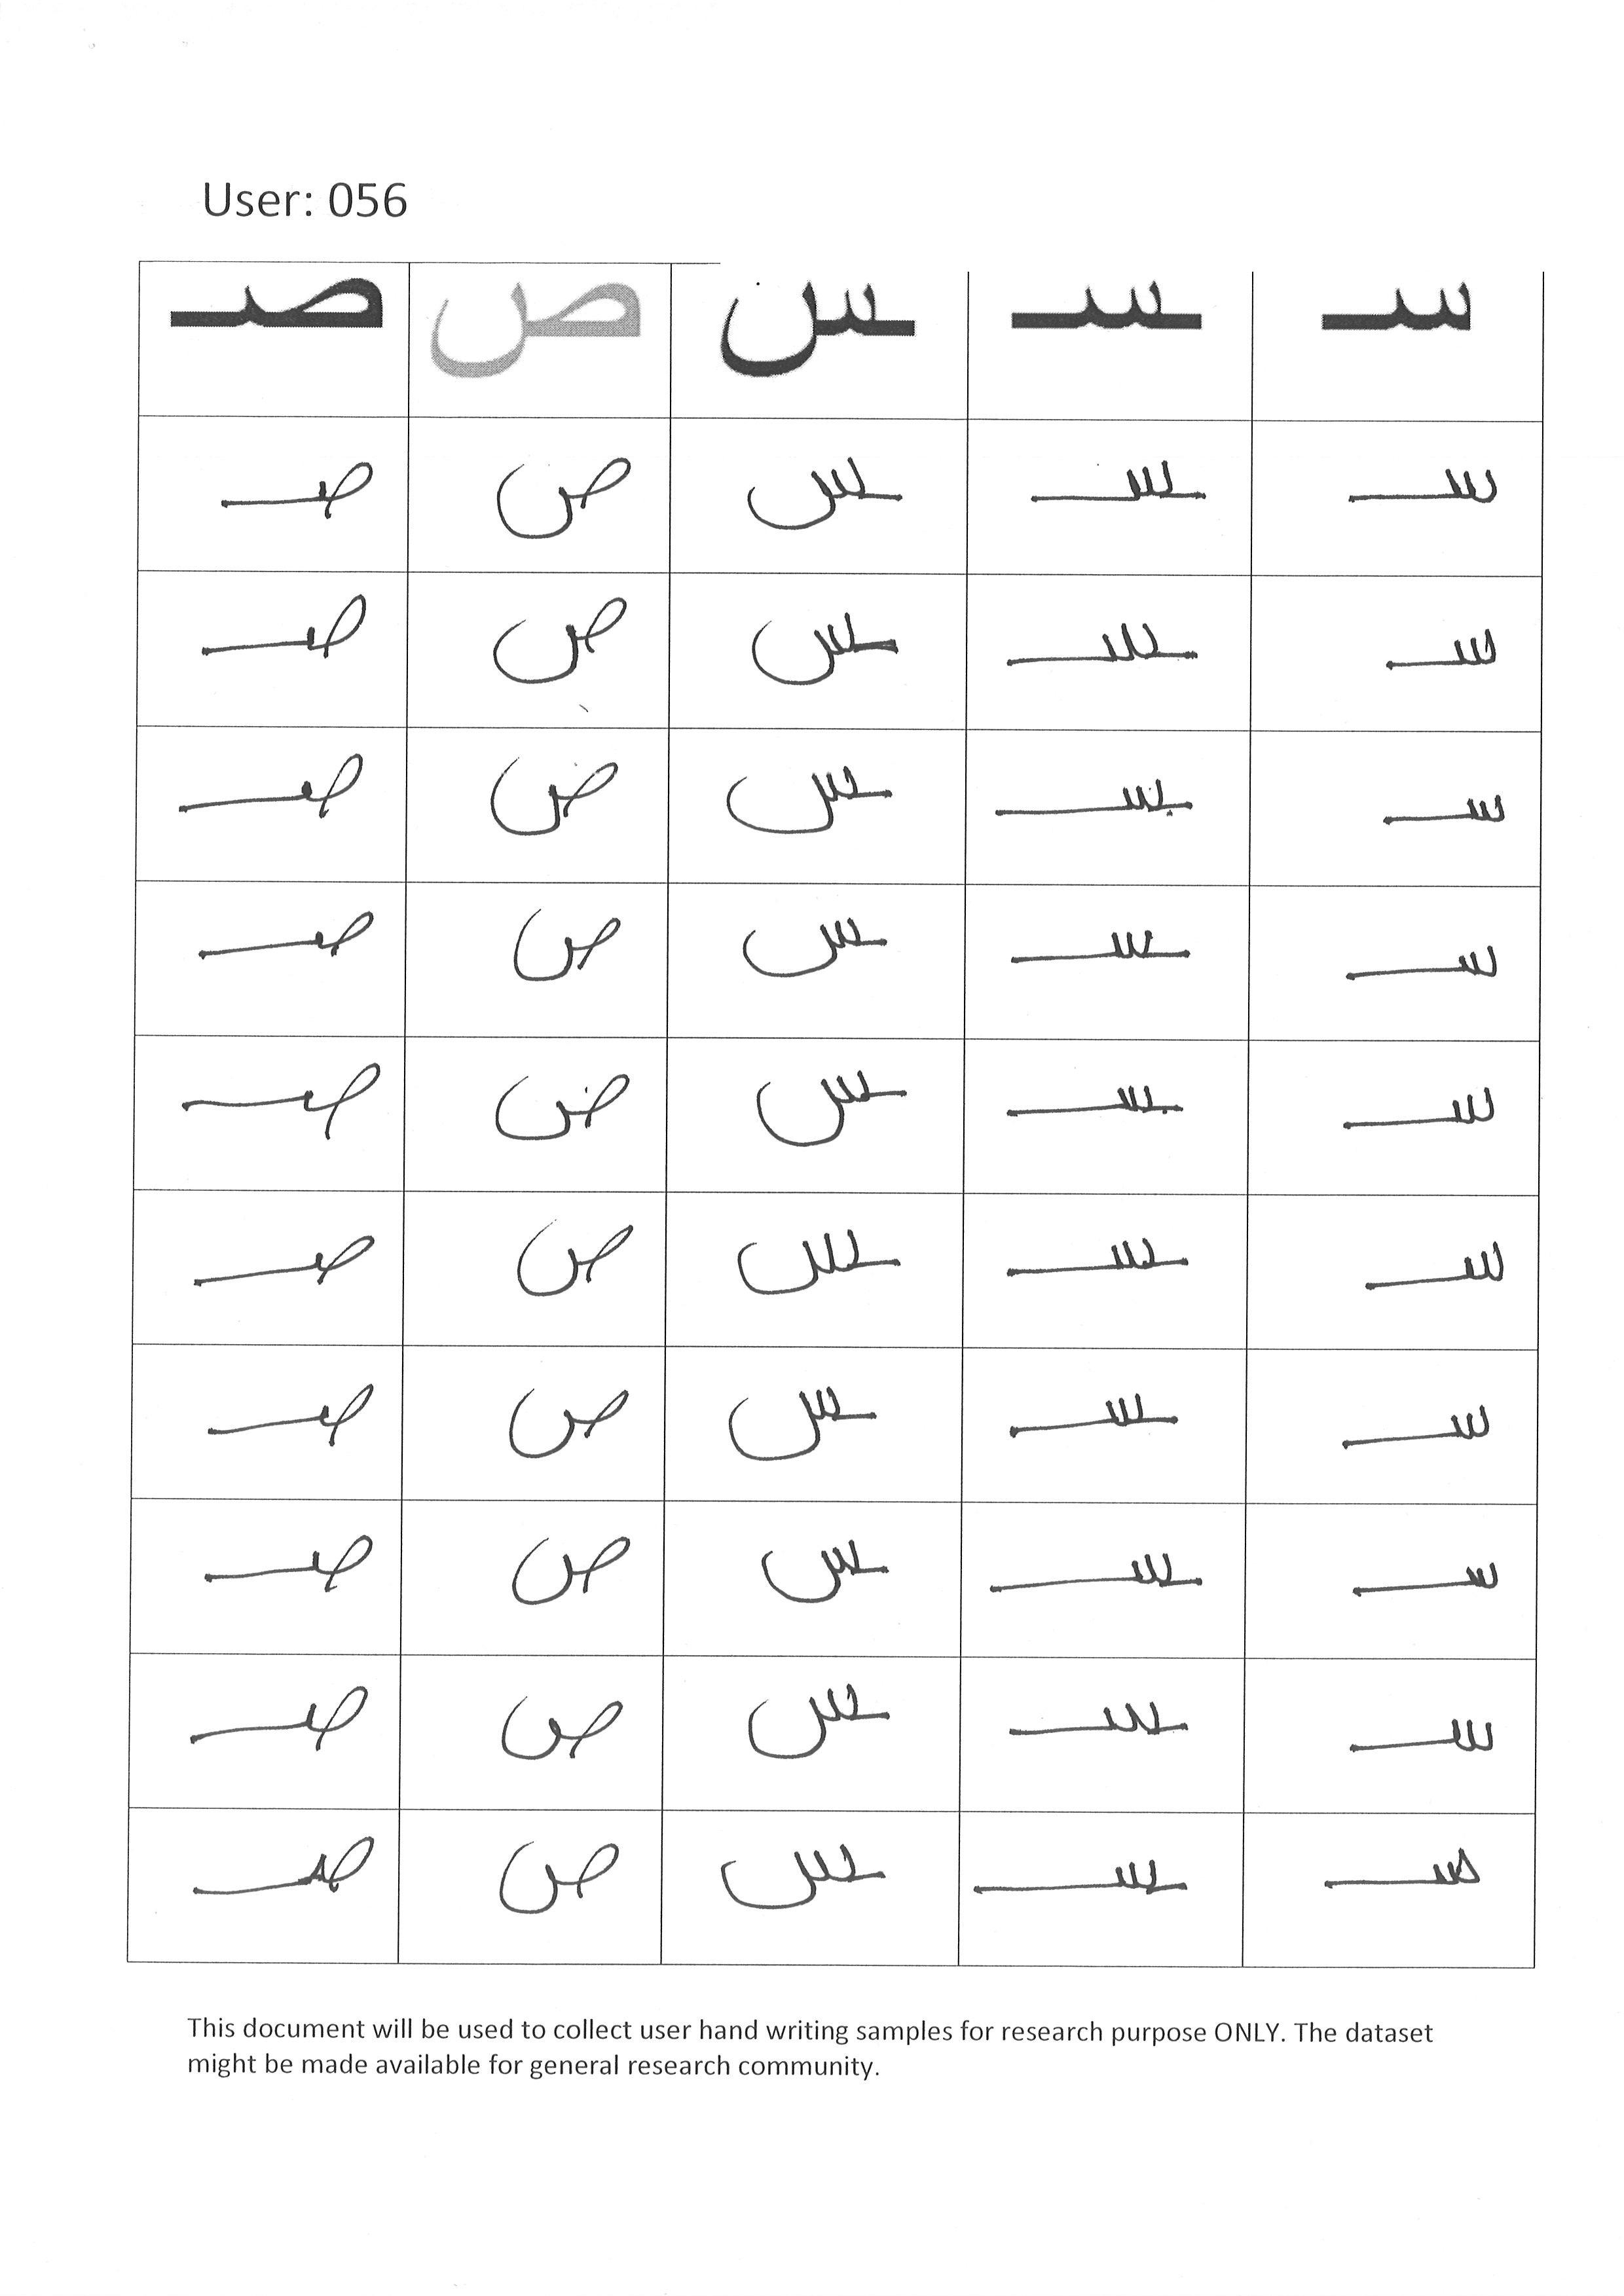 User: 056
سـ ـسـ ـس ص صـ
سـ ـسـ ـس ص صـ
سـ ـسـ ـس ص صـ
سـ ـسـ ـس ص صـ
سـ ـسـ ـس ص صـ
سـ ـسـ ـس ص صـ
سـ ـسـ ـس ص صـ
سـ ـسـ ـس ص صـ
سـ ـسـ ـس ص صـ
سـ ـسـ ـس ص صـ
سـ ـسـ ـس ص صـ
This document will be used to collect user hand writing samples for research purpose ONLY. The dataset
might be made available for general research community.